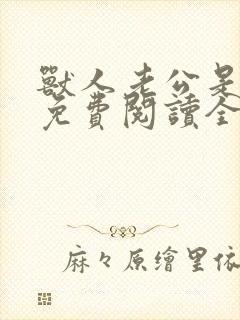 獸人老公是
免費閱讀全
麻々原繪里依